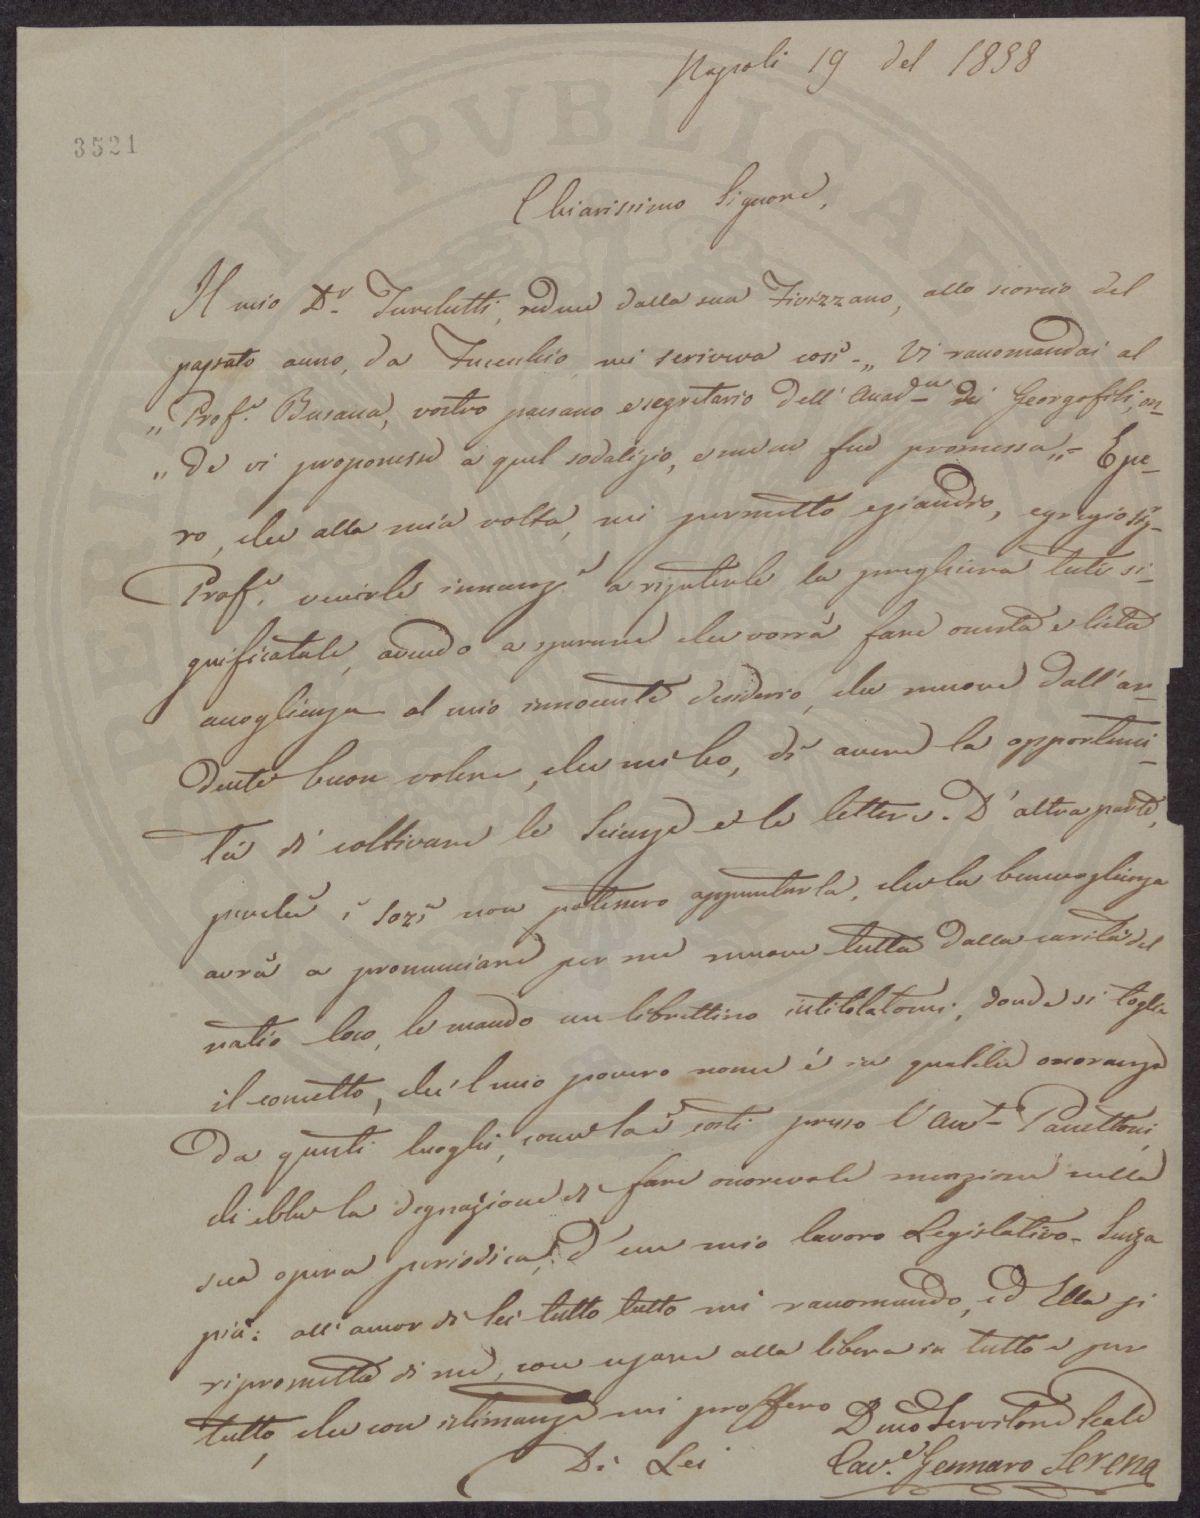 Napoli 19 del 1858
3521
Chiarissimo Signore,
Il mio D.r Turchetti, redue dalla sua Fivizzano, allo scorcio del
passato anno, da Fucecchio mi scriveva così - „ Vi raccomandai al
„ Prof.e Busacca, vostro paesano e segretario dell' Accad.ia dei Georgofili, on-
„ de vi proponesse a quel sodalizio, e me ne fece promessa „ - E pe-
ro, che alla mia volta, mi permetto eziandio, egregio Sig.
Prof.e venirle innanzi a ripeterle la preghiera tale si-
gnificatale, avendo a sperare che vorrà fare onesta e lieta
accoglienza al mio innocente desiderio, che muove dall'ar-
dente buon volere, che mi ho, di avere la opportuni-
tà di coltivare le Scienze e le lettere. D'altra parte,
perché i Sozi non potessero appuntarla, che la benevoglienza
avrà a pronunciare per me muove tutta dalla carità del
natio loco, le mando un librettino intitolatomi, donde si toglie
il concetto, che 'l mio povero nome è in qualche onoranza
da questi luoghi, come la è costì presso l'Avv.to Panattoni,
ch'ebbe la degnazione di fare onorevole menzione nella
sua opera periodica, d'un mio lavoro Legislativo. Senza
più: all'amor di Lei tutto tutto mi raccomando, ed Ella si
riprometta di me, con usare alla libera in tutto e per
tutto, che con istimanza mi proffero
Di Lei
D.mo Servitore leale
Cav.e Gennaro Serena